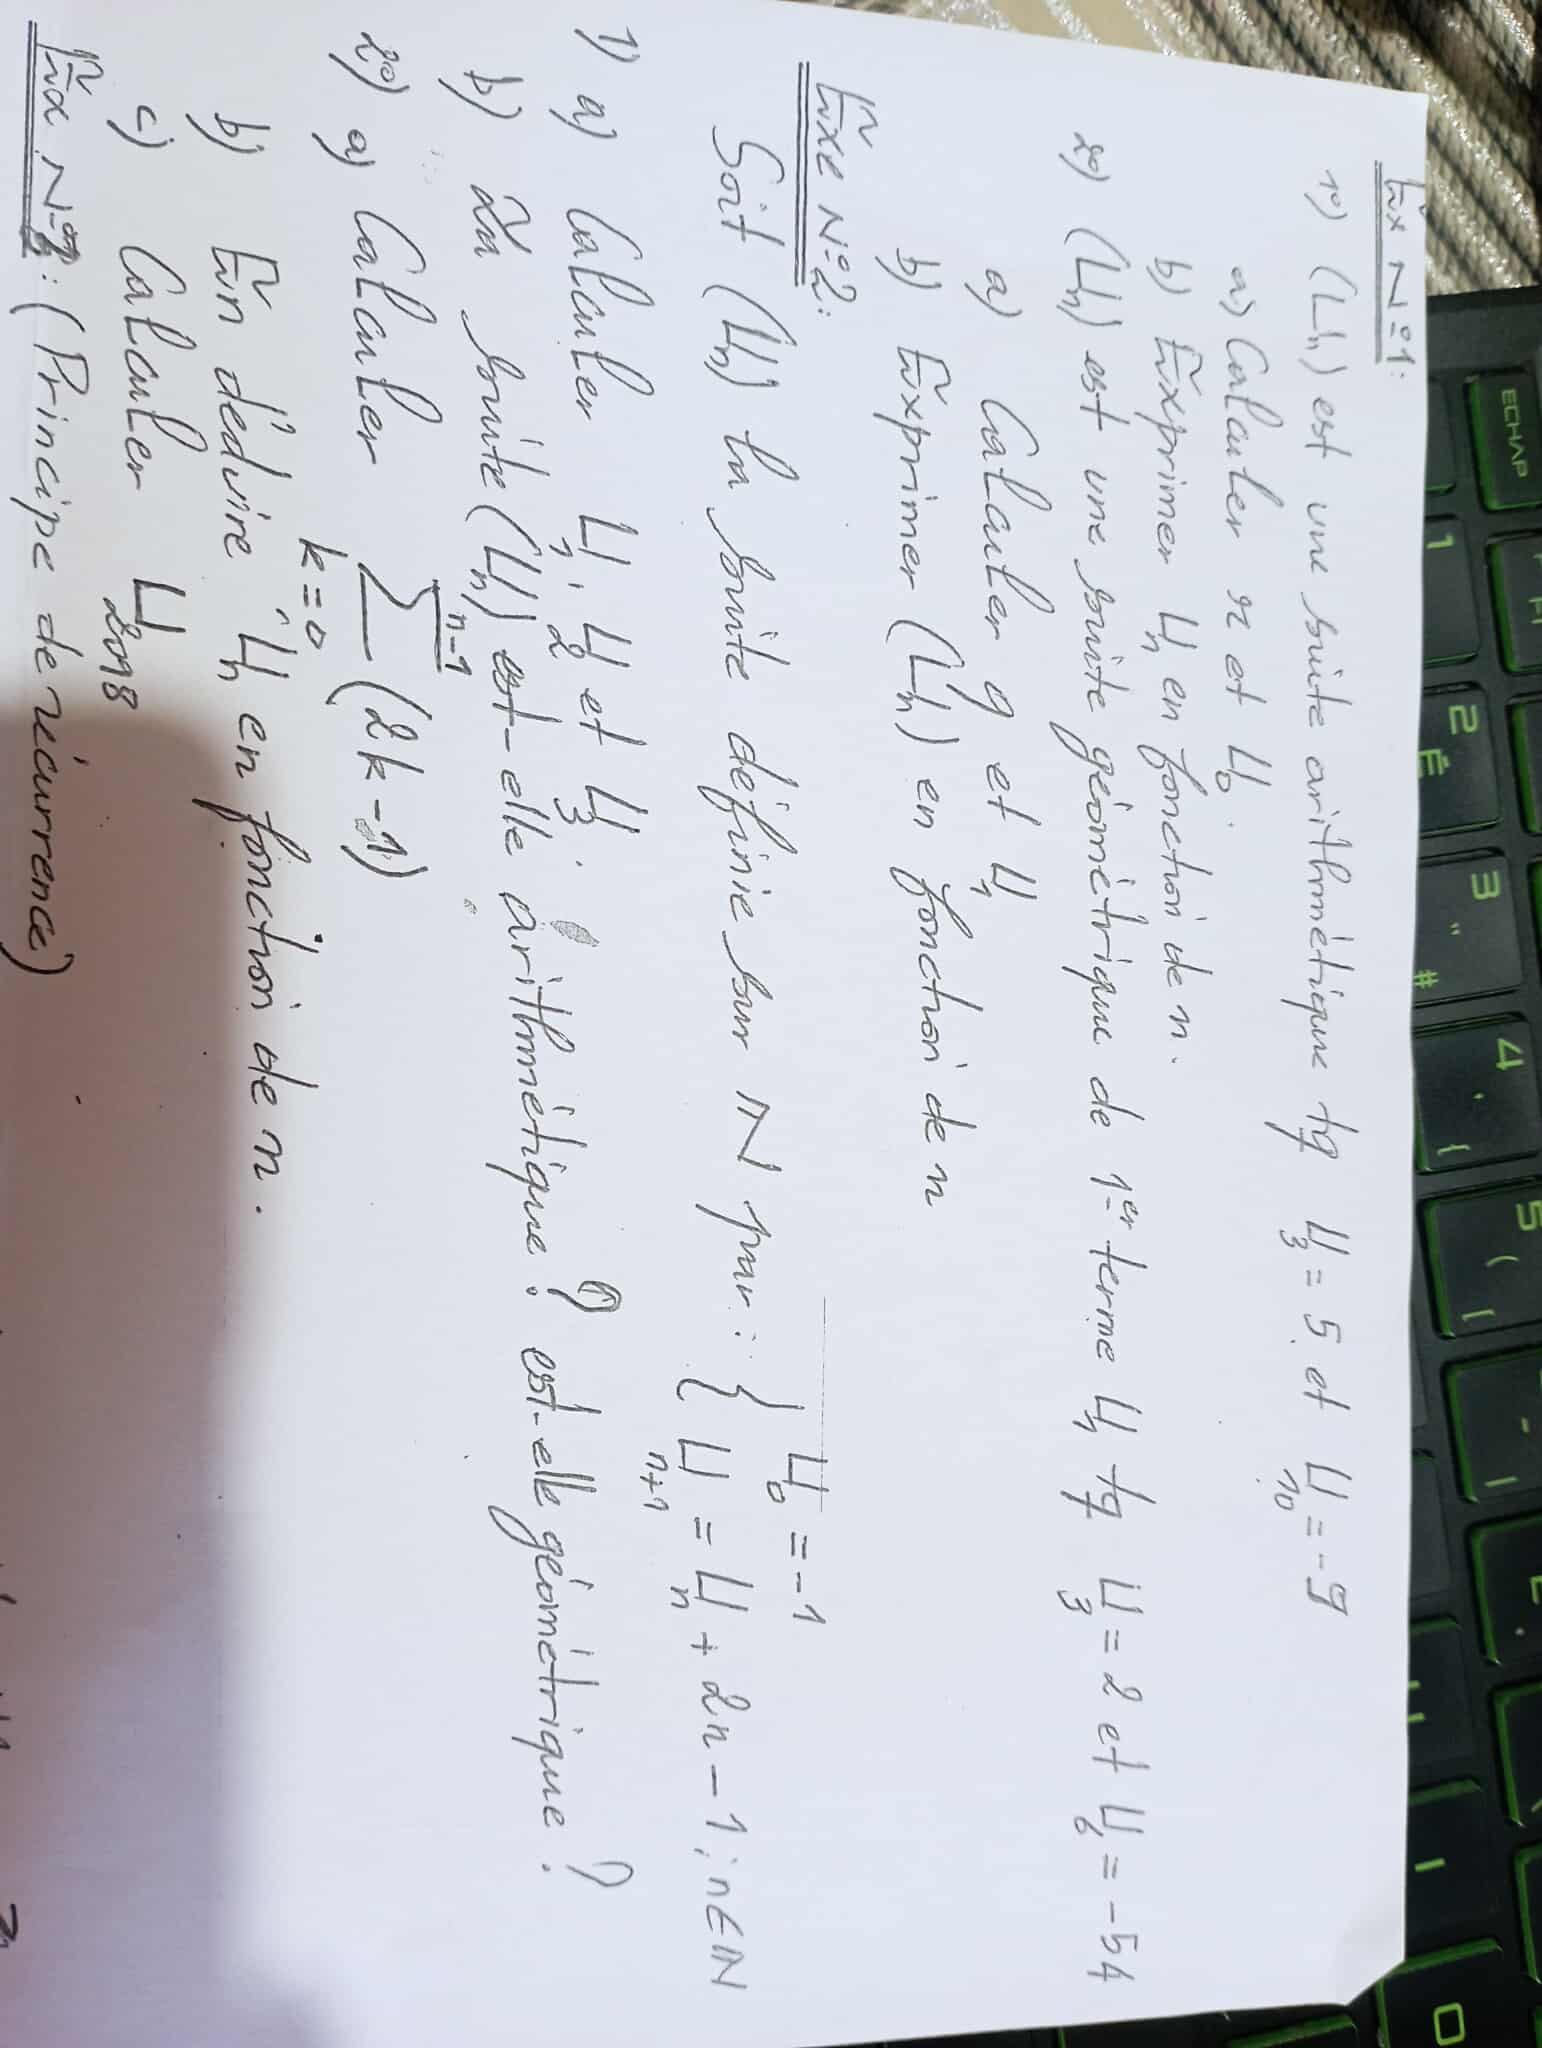 ECHAP
F1
1
2
É
3
"
#
4
'
{
5
(
[
-
|
Ex N°1:
1°) (Un) est une suite arithmétique tq U3 = 5 et U10 = -9
a) Calculer r et U0.
b) Exprimer Un en fonction de n.
2°) (Un) est une suite géométrique de 1er terme U1 tq U3 = 2 et U6 = -54
a) Calculer q et U1
b) Exprimer (Un) en fonction de n
Exe N°2:
Soit (Un) la suite définie sur ℕ par : { U0 = -1
Un+1 = Un + 2n - 1 ; n ∈ ℕ
1) a) Calculer U1, U2 et U3.
b) La suite (Un) est-elle arithmétique ? est-elle géométrique ?
2°) a) Calculer ∑_{k=0}^{n-1} (2k - 1)
b) En déduire Un en fonction de n.
c) Calculer U2098
Ex N°3: (Principe de récurrence)